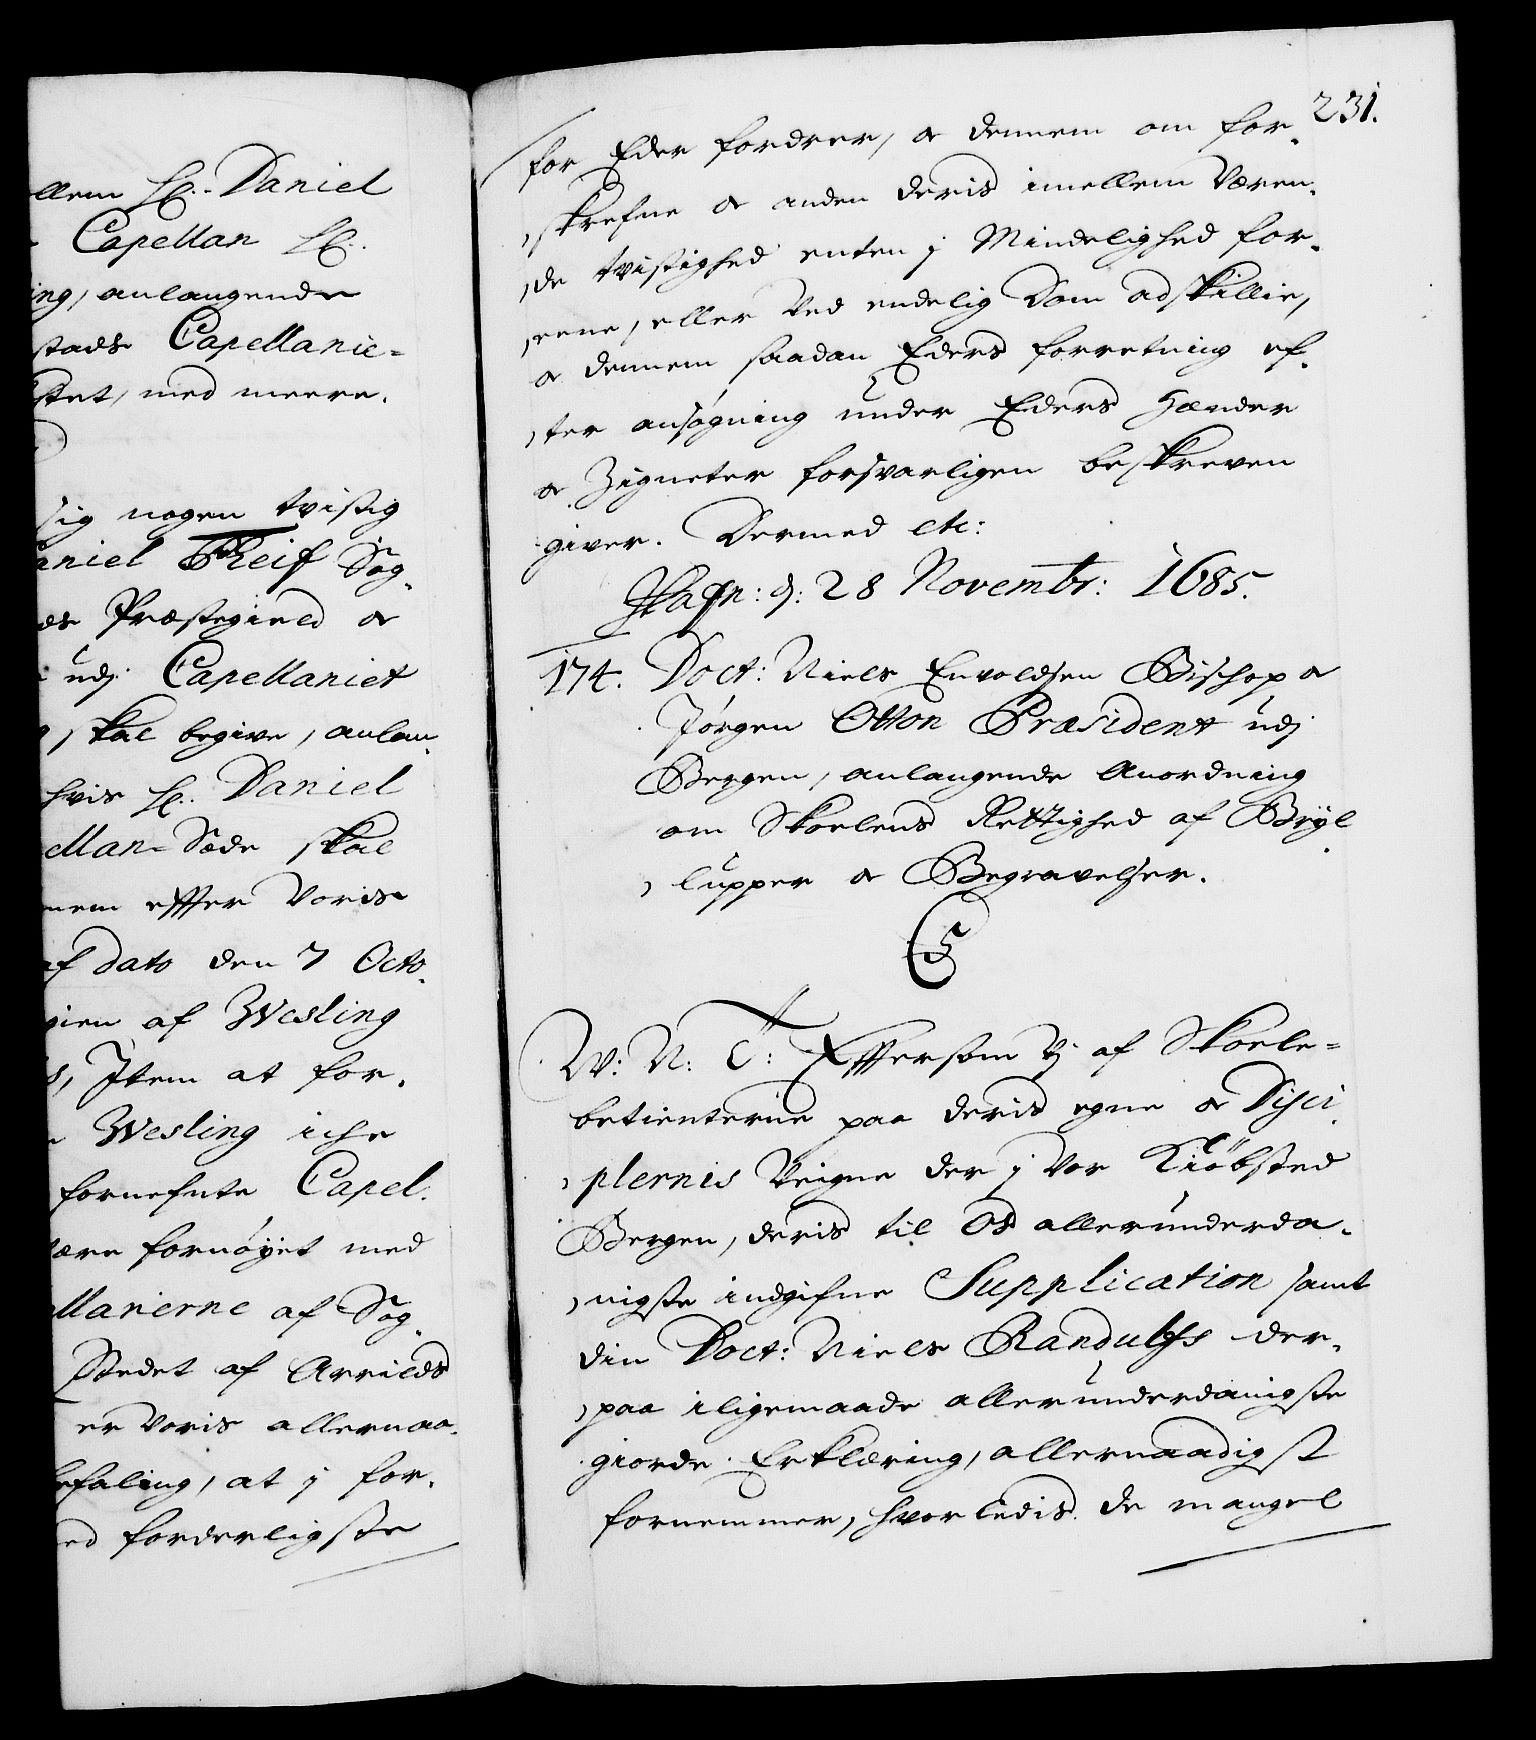 llem Hr. Daniel
Capellan Hr.
ing, anlangende
stads Capellanie-
stet, med meere.
sig nogen tvistig
aniel Reif Sog-
ds Præstegield oc
udj Capellaniet
, skal begive, anlan-
hvis Hr. Daniel
ellan-Sæde skal
nem effter Voris
af dato den 7 Octo-
gien af Wesling
s, Item at for-
Wesling iche
fornefnte Capel-
være fornøyet med
llanierne af Sog-
Stedet af Arrilds
er Voris allernaa-
befaling, at j for-
ed forderligste
231.
for Eder fordrer, oc dennem om for-
skrefne oc anden deris imellem Væren-
de tvistighed enten j Mindelighed for-
eene, eller ved endelig Dom adskillie,
oc dennem saadan Eders forretning ef-
ter ansøgning under Eders Hænder
oc Zigneter forsvarligen beskreven
giver. Dermed etc:
Hafn: d: 28 Novembr: 1685.
174. Doct: Niels Envoldsen Bischop oc
Jørgen Otton Præsident udj
Bergen, anlangende Anordning
om Skoelens Rettighed af Brÿl-
lupper oc Begravelser.
C5
W: N: C: Effersom Vj af Skoele-
betienterne paa deris egne oc Disci-
plernis Veigne der j Vor Kiöbsted
Bergen, deris til Os allerunderda-
nigste indgifne Supplication samt
din Doct: Niels Randulfs der-
paa iligemaade allerunderdanigste
giorde Erklæring, allernaadigst
fornemmer, hvorledis de mangel